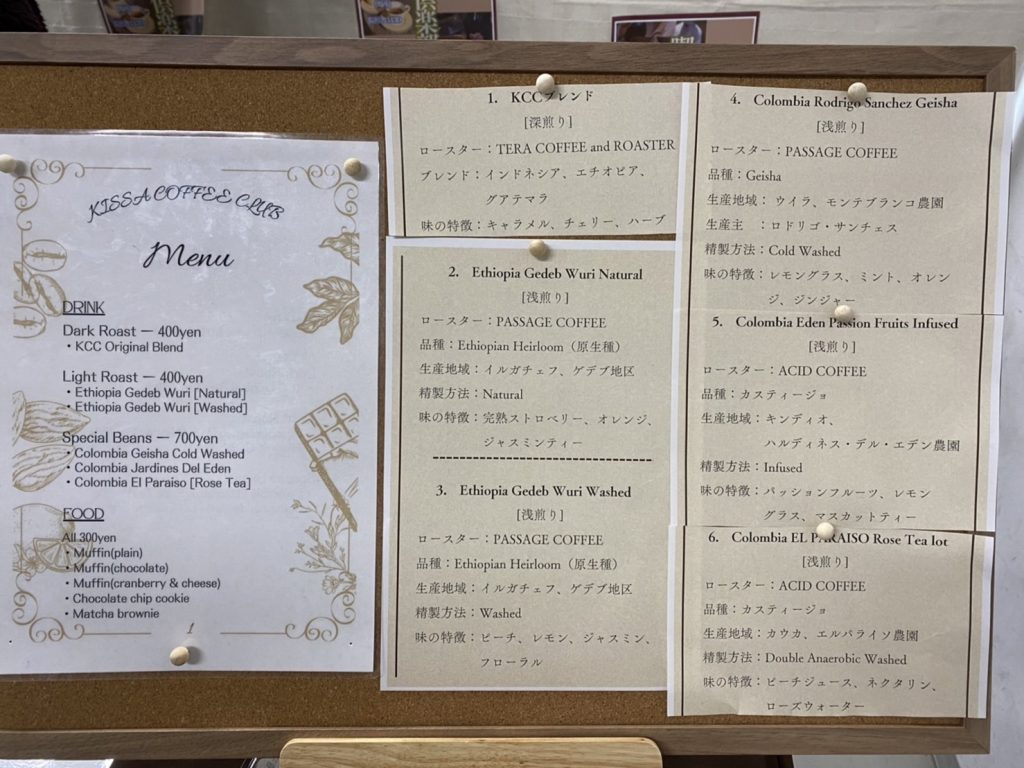 KISSA COFFEE CLUB
Menu
DRINK
Dark Roast ー 400yen
・KCC Original Blend
Light Roast ー 400yen
・Ethiopia Gedeb Wuri [Natural]
・Ethiopia Gedeb Wuri [Washed]
Special Beans ー 700yen
・Colombia Geisha Cold Washed
・Colombia Jardines Del Eden
・Colombia El Paraiso [Rose Tea]
FOOD
All 300yen
・Muffin(plain)
・Muffin(chocolate)
・Muffin(cranberry & cheese)
・Chocolate chip cookie
・Matcha brownie
1. KCCブレンド
[深煎り]
ロースター：TERA COFFEE and ROASTER
ブレンド：インドネシア、エチオピア、
グアテマラ
味の特徴：キャラメル、チェリー、ハーブ
2. Ethiopia Gedeb Wuri Natural
[浅煎り]
ロースター：PASSAGE COFFEE
品種：Ethiopian Heirloom（原生種）
生産地域：イルガチェフ、ゲデブ地区
精製方法：Natural
味の特徴：完熟ストロベリー、オレンジ、
ジャスミンティー
3. Ethiopia Gedeb Wuri Washed
[浅煎り]
ロースター：PASSAGE COFFEE
品種：Ethiopian Heirloom（原生種）
生産地域：イルガチェフ、ゲデブ地区
精製方法：Washed
味の特徴：ピーチ、レモン、ジャスミン、
フローラル
4. Colombia Rodrigo Sanchez Geisha
[浅煎り]
ロースター：PASSAGE COFFEE
品種：Geisha
生産地域： ウイラ、モンテブランコ農園
生産主 ：ロドリゴ・サンチェス
精製方法：Cold Washed
味の特徴：レモングラス、ミント、オレン
ジ、ジンジャー
5. Colombia Eden Passion Fruits Infused
[浅煎り]
ロースター：ACID COFFEE
品種：カスティージョ
生産地域：キンディオ、
ハルディネス・デル・エデン農園
精製方法：Infused
味の特徴：パッションフルーツ、レモン
グラス、マスカットティー
6. Colombia EL PARAISO Rose Tea lot
[浅煎り]
ロースター：ACID COFFEE
品種：カスティージョ
生産地域：カウカ、エルパライソ農園
精製方法：Double Anaerobic Washed
味の特徴：ピーチジュース、ネクタリン、
ローズウォーター